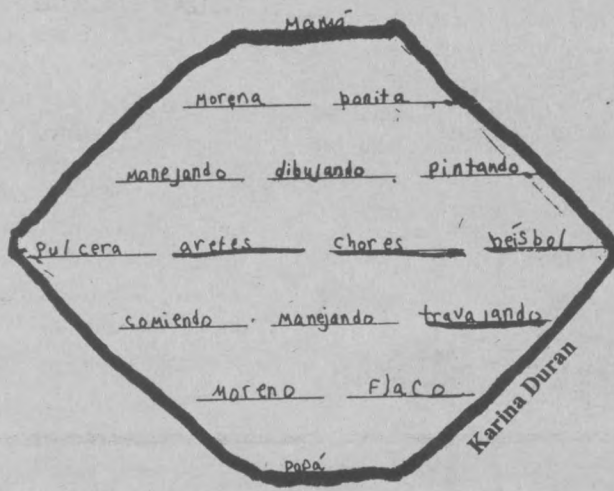 Mamá
Morena bonita
Manejando dibujando pintando
pulcera aretes chores beísbol
comiendo Manejando travajando
Moreno Flaco
papá
Karina Duran